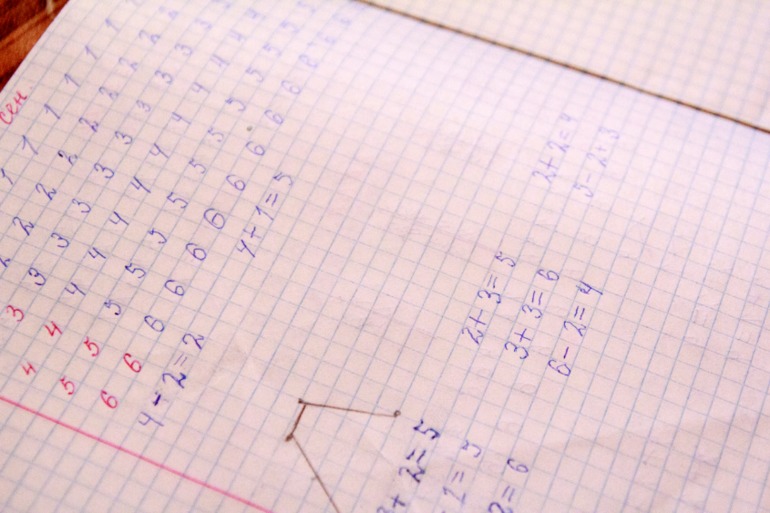 сен
1 1 1 1 1 1 1
2 2 2 2 2 2 2 2 2
3 3 3 3 3 3 3 3 3 3
4 4 4 4 4 4 4 4 4 4 4 4
5 5 5 5 5 5 5 5 5 5 5 5
6 6 6 6 6 6 6 6 6 6 6 6 6
4-2=2 4+1=5
3+2=5 2+3=5 2+2=4
3+3=6 5-2=3
2=6 6-2=4